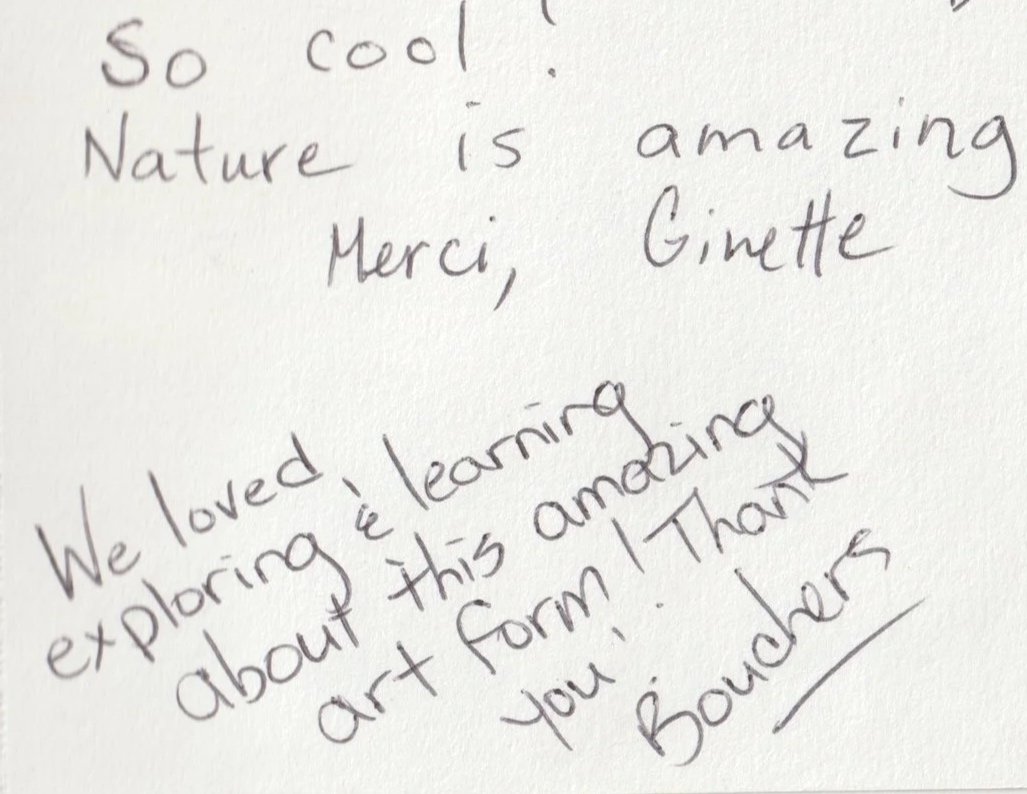 So cool!
Nature is amazing
Merci, Ginette
We loved
exploring & learning
about this amazing
art form! Thank
you!
Bouchers